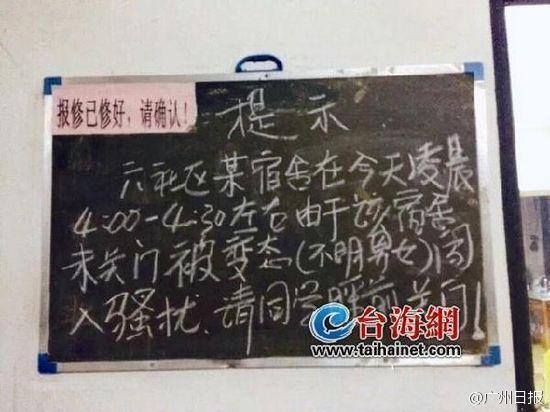 报修已修好，请确认！
提示
六社区某宿舍在今天凌晨
4:00-4:30左右由于该宿舍
未关门被变态(不明男女)闯
入骚扰.请同学睡前关门!
台海網
www.taihainet.com
@广州日报